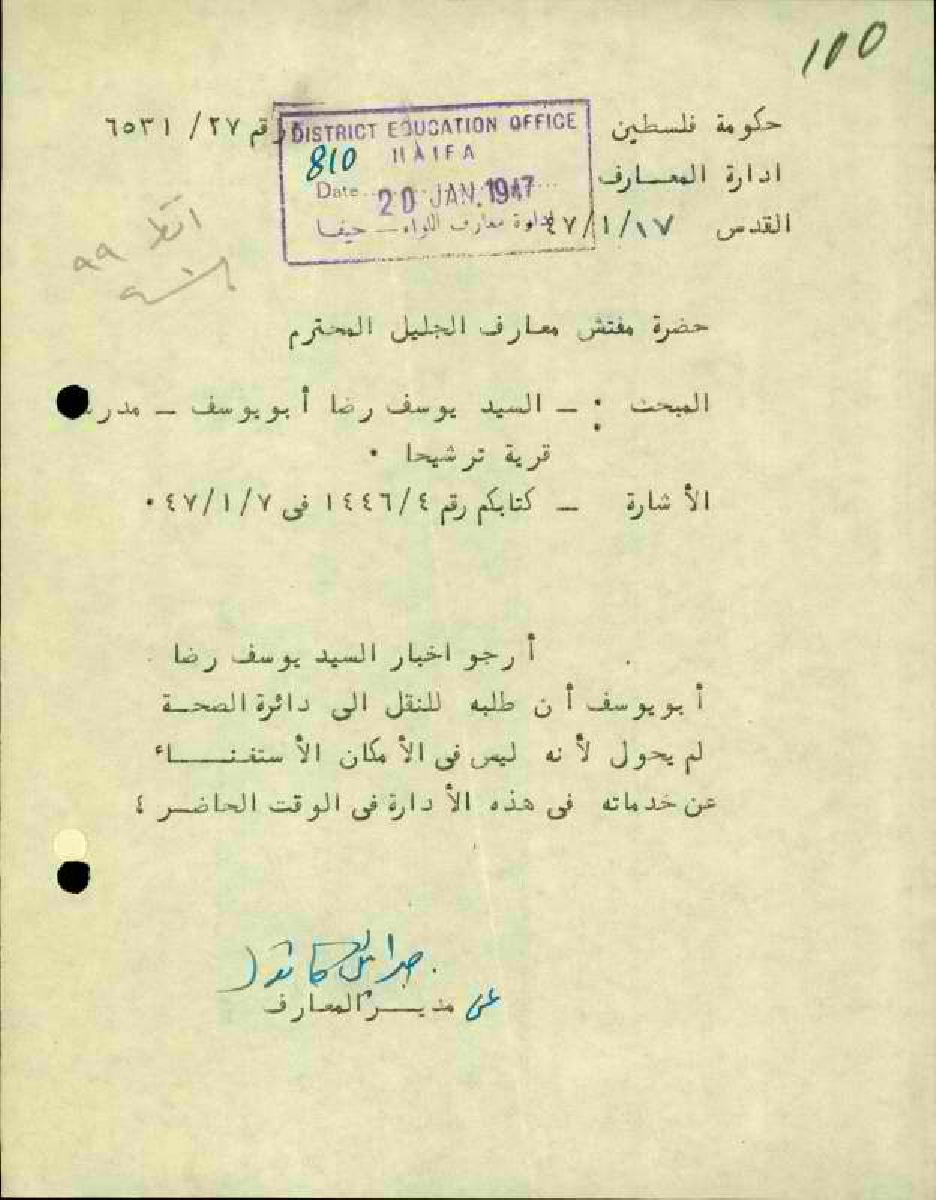 110
حكومة فلسطين
رقم ٢٧/ ٦٥٣١
ادارة المعـــارف
القدس ٤٧/١/١٧
DISTRICT EDUCATION OFFICE
HAIFA
810
Date 20 JAN. 1947
ادارة معارف اللواء — حيفا
٩٩
حضرة مفتش معارف الجليل المحترم
المبحث : – السيد يوسف رضا أبويوسف – مدرسة
قرية ترشيحا ٠
الأشارة – كتابكم رقم ١٤٤٦/٤ فى ٤٧/١/٧ ٠
أرجو اخبار السيد يوسف رضا
أبويوسف أن طلبه للنقل الى دائرة الصحـة
لم يحول لأنه ليس فى الأمكان الأستغنـــاء
عن خدماته فى هذه الأدارة فى الوقت الحاضـر ؛
عن مديـــر المعارف